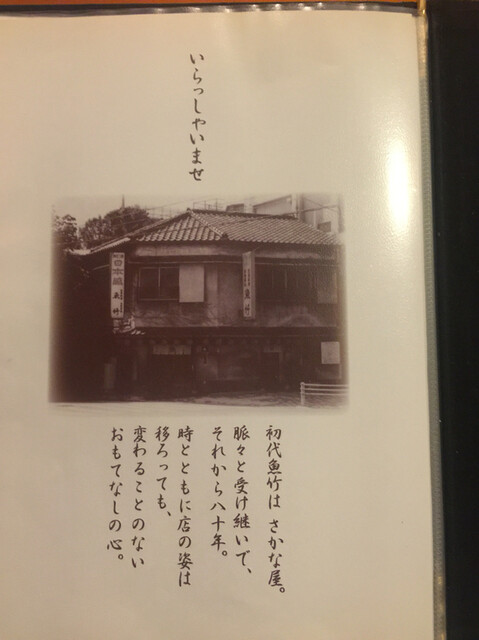 いらっしゃいませ
日本盛
魚竹
魚竹
初代魚竹は さかな屋。
脈々と受け継いで、
それから八十年。
時とともに店の姿は
移ろっても、
変わることのない
おもてなしの心。